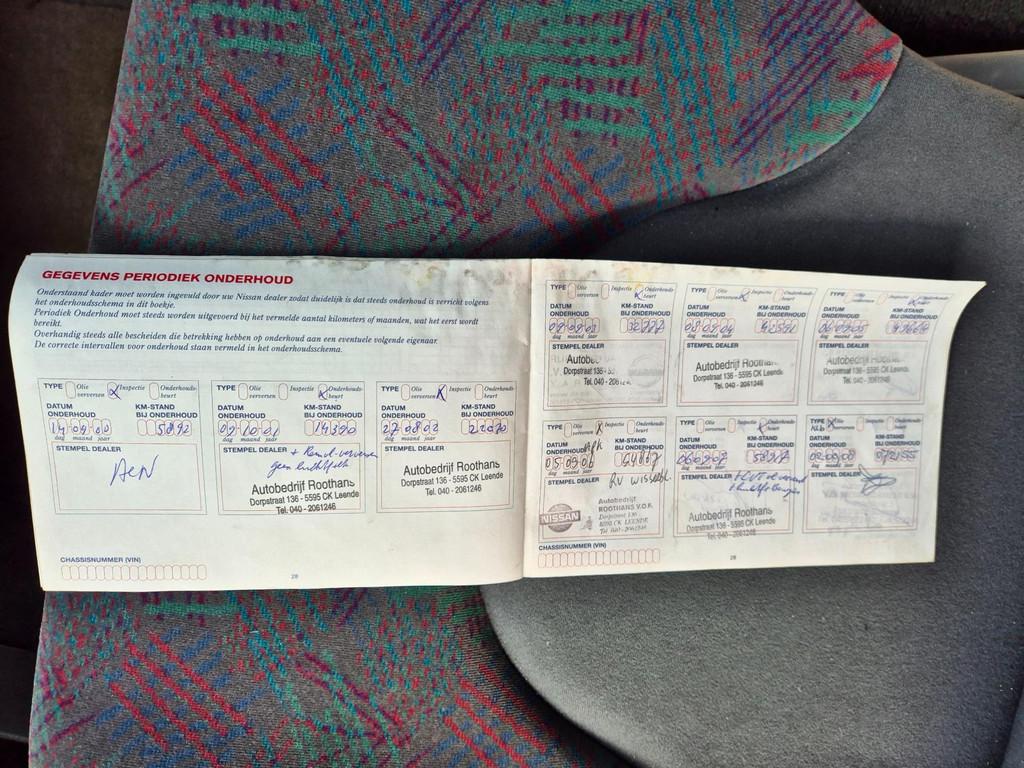 GEGEVENS PERIODIEK ONDERHOUD
Onderstaand kader moet worden ingevuld door uw Nissan dealer zodat duidelijk is dat steeds onderhoud is verricht volgens
het onderhoudsschema in dit boekje.
Periodiek Onderhoud moet steeds worden uitgevoerd bij het vermelde aantal kilometers of maanden, wat het eerst wordt
bereikt.
Overhandig steeds alle bescheiden die betrekking hebben op onderhoud aan een eventuele volgende eigenaar.
De correcte intervallen voor onderhoud staan vermeld in het onderhoudsschema.
TYPE Olie verversen X Inspectie Onderhouds-
beurt
DATUM ONDERHOUD
KM-STAND BIJ ONDERHOUD
14 09 00
5892
dag maand jaar
STEMPEL DEALER
TYPE Olie verversen Inspectie X Onderhouds-
beurt
DATUM ONDERHOUD
KM-STAND BIJ ONDERHOUD
09 10 01
14390
dag maand jaar
STEMPEL DEALER
Autobedrijf Roothans
Dorpstraat 136 - 5595 CK Leende
Tel. 040 - 2061246
TYPE Olie verversen X Inspectie Onderhouds-
beurt
DATUM ONDERHOUD
KM-STAND BIJ ONDERHOUD
27 08 02
dag maand jaar
STEMPEL DEALER
Autobedrijf Roothans
Dorpstraat 136 - 5595 CK Leende
Tel. 040 - 2061246
CHASSISNUMMER (VIN)
28
TYPE Olie verversen Inspectie X Onderhouds-
beurt
DATUM ONDERHOUD
KM-STAND BIJ ONDERHOUD
dag maand jaar
STEMPEL DEALER
Dorpstraat 136
TYPE Olie verversen X Inspectie Onderhouds-
beurt
DATUM ONDERHOUD
KM-STAND BIJ ONDERHOUD
08 09 04
dag maand jaar
STEMPEL DEALER
Autobedrijf Roothans
Dorpstraat 136 - 5595 CK Leende
Tel. 040 - 2061246
TYPE Olie verversen Inspectie Onderhouds-
DATUM ONDERHOUD
KM-STAND BIJ ONDERHOUD
dag maand jaar
STEMPEL DEALER
Autobedrijf Roothans
Dorpstraat 136 - 5595 CK Leende
Tel. 040 - 2061246
TYPE Olie verversen X Inspectie Onderhouds-
beurt
DATUM ONDERHOUD
APK
KM-STAND BIJ ONDERHOUD
05 09 06
dag maand jaar
STEMPEL DEALER
NISSAN
Autobedrijf
ROOTHANS V.O.F.
Dorpstraat 136
CK LEENDE
Tel. 040-2061246
TYPE Olie verversen Inspectie X Onderhouds-
beurt
DATUM ONDERHOUD
KM-STAND BIJ ONDERHOUD
06 09 07
dag maand jaar
STEMPEL DEALER
Autobedrijf Roothans
Dorpstraat 136 - 5595 CK Leende
Tel. 040 - 2061246
X Inspectie Onderhouds-
beurt
DATUM ONDERHOUD
KM-STAND BIJ ONDERHOUD
dag maand jaar
STEMPEL DEALER
CHASSISNUMMER (VIN)